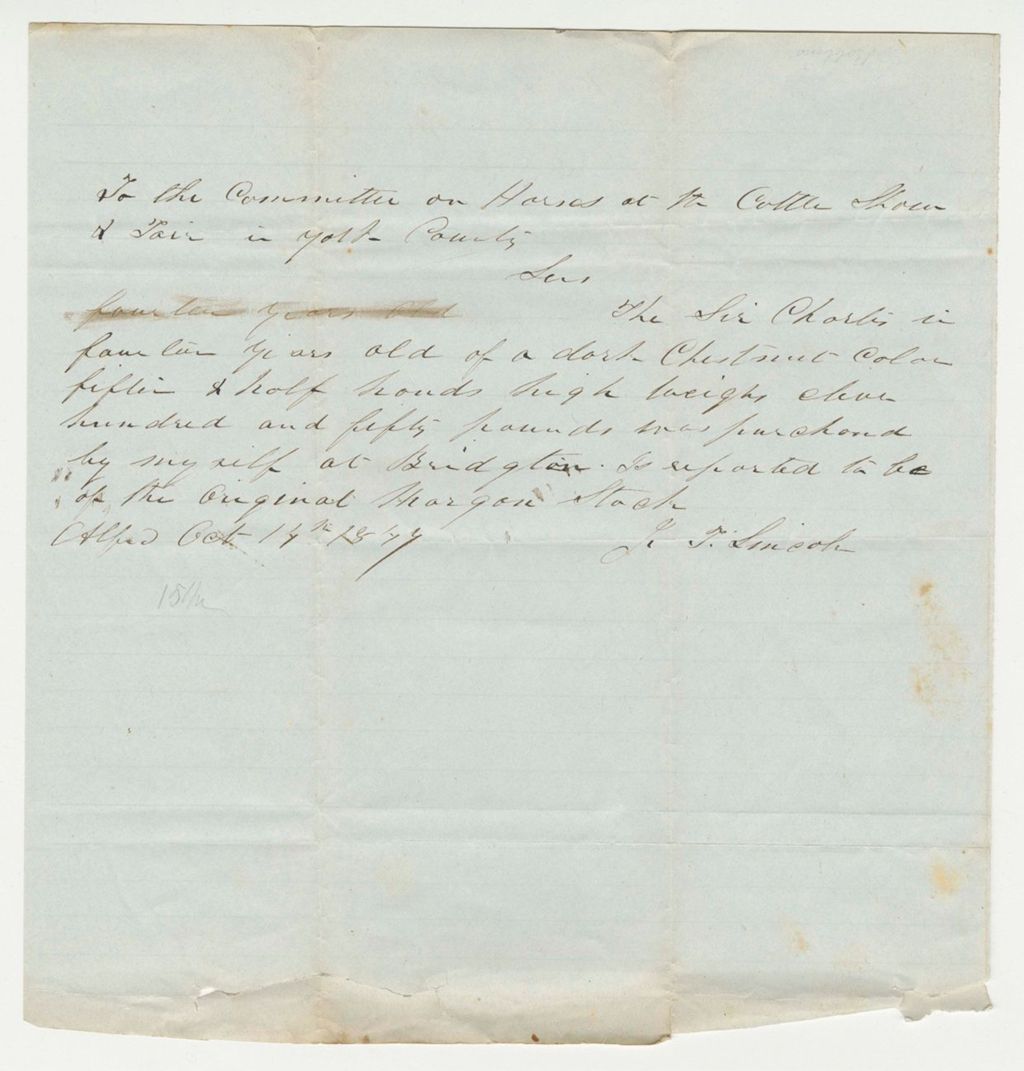 To the Committee on Horses at the Cattle Show
& Fair in York County
Sirs
fourteen years old The Sir Charles is
fourteen years old of a dark Chestnut Color
fifteen & half hands high weighs eleven
hundred and fifty pounds was purchased
by myself at Bridgton. Is reported to be
of the Original Morgan Stock
Alfred Oct 14th
T. Lincoln